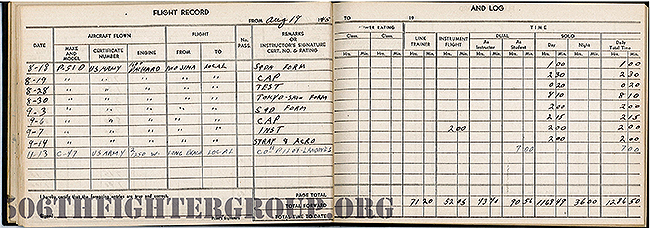 FLIGHT RECORD
FROM Aug 19 1945
TO 19
AND LOG
DATE
AIRCRAFT FLOWN
MAKE AND MODEL
CERTIFICATE NUMBER
ENGINE
FLIGHT
FROM
TO
NO. PASS.
REMARKS OR INSTRUCTOR'S SIGNATURE CERT. NO. & RATING
POWER RATING
Class.
Class.
TIME
LINK TRAINER
INSTRUMENT FLIGHT
DUAL
As Instructor
As Student
SOLO
Day
Night
Daily Total Time
Hrs. Min. Hrs. Min. Hrs. Min. Hrs. Min. Hrs. Min. Hrs. Min. Hrs. Min.
8-18 P-51D US ARMY PACKARD IWO JIMA LOCAL FORM 1 00 1 00
8-19 " " " " " CAP 2 30 2 30
8-28 " " " " " TEST 0 20 0 20
8-30 " " " " " FORM 8 10 8 10
9-3 " " " " " FORM 2 00 2 00
9-6 " " " " " CAP 2 15 2 15
9-7 " " " " " INST 2 00 2 00 2 00
9-14 " " " " " & ACRO 2 00 2 00
11-13 C-47 US ARMY LONG BEACH LOCAL LANDINGS 7 00 7 00
I hereby certify that the foregoing entries are true and correct.
PAGE TOTAL
TOTAL FORWARD
TOTAL TIME TO DATE
71 20 52 05 90 56 36 00 1286 50
506THFIGHTERGROUP.ORG